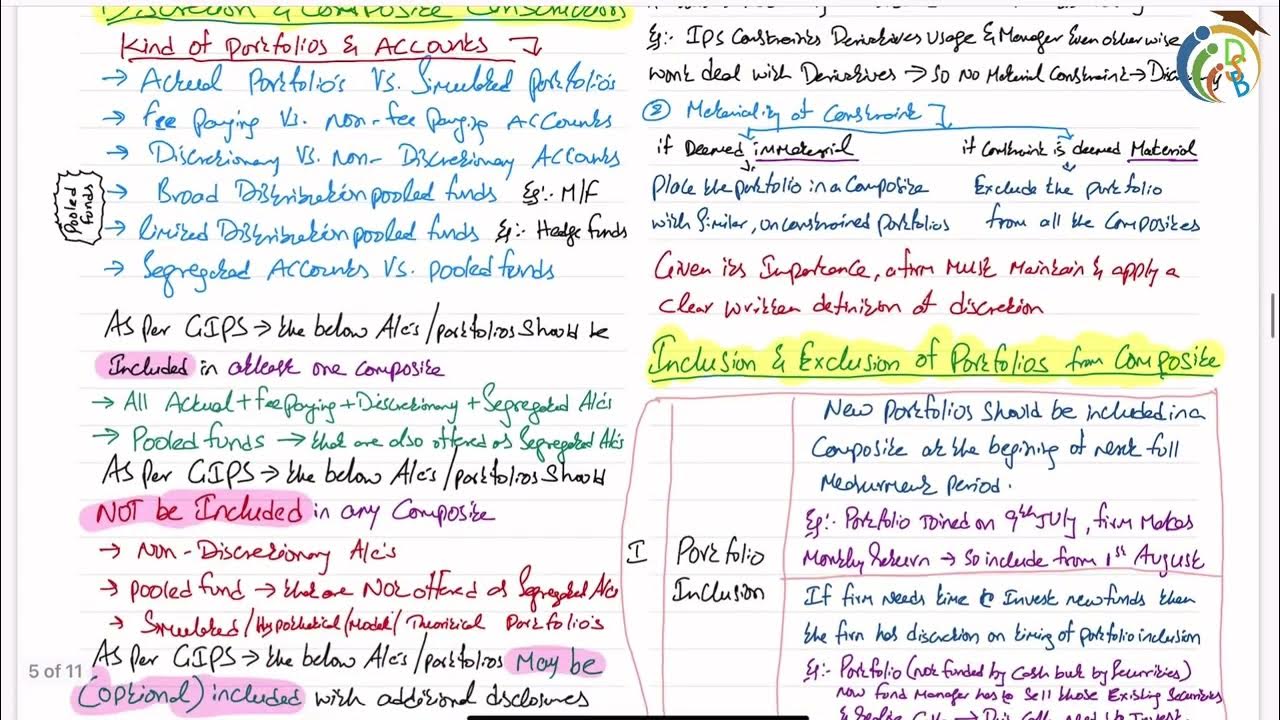 Discretion & Composite Construction
Kind of Portfolios & Accounts
→ Actual Portfolio's Vs. Simulated portfolio's
→ fee paying Vs. Non-fee paying Accounts
→ Discretionary Vs. Non-Discretionary Accounts
→ Broad Distribution pooled funds Eg:- M/F
→ limited Distribution pooled funds Eg:- Hedge funds
Pooled funds
→ Segregated Accounts Vs. pooled funds
As per GIPS → the below A/c's/portfolios should be
Included in atleast one composite
→ All Actual + fee paying + Discretionary + Segregated A/c's
→ Pooled funds → that are also offered as Segregated A/c's
As per GIPS → the below A/c's/portfolios should
NOT be Included in any Composite
→ Non-Discretionary A/c's
→ pooled fund → that are NOT offered as Segregated A/c's
→ Simulated/Hypothetical/Model/Theoritical Portfolio's
As per GIPS → the below A/c's/portfolios May be
(optional) included with additional disclosures
5 of 11
Eg:- IPS Constraints Derivatives usage & Manager Even otherwise
wont deal with Derivatives → so No Material Constraint →
② Materiality of Constraint
if Deemed immaterial if Constraint is deemed Material
Place the portfolio in a Composite Exclude the portfolio
with Similar, unconstrained portfolios from all the Composites
Given its Importance, a firm Must Maintain & apply a
clear written definition of discretion
Inclusion & Exclusion of Portfolios from Composite
New Portfolios should be included in a
Composite at the begining of next full
Measurment period.
Eg:- Portfolio Joined on 9th July, firm Makes
I Portfolio Monthly Return → so include from 1st August
Inclusion If firm needs time to Invest new funds then
the firm has discretion on timing of portfolio inclusion
Eg:- Portfolio (not funded by Cash but by Securities)
Now fund Manager has to Sell those Existing Securities
DSB